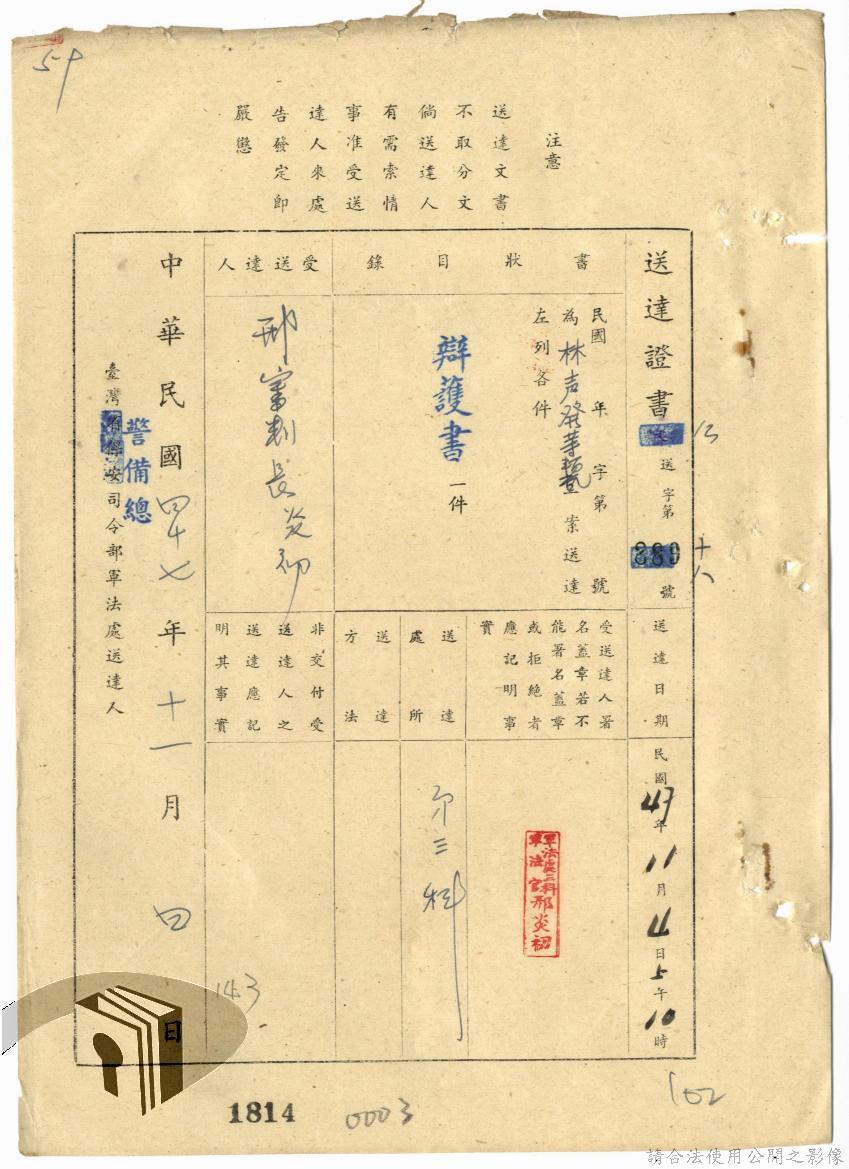 59
注意
送達文書
不取分文
倘送達人
有需索情
事准受送
達人來處
告發定即
嚴懲
送達證書
送字第
889
號
十八
書狀目錄
民國 年 字第 號
為林声發等 案送達
左列各件
辯護書
一件
受送達人
邢審判長炎初
送達日期
民國47年11月4日上午10時
受送達人署
名蓋章若不
能署名蓋章
或拒絕者
應記明事
實
軍法處三科
軍法官邢炎初
送達處所
第三科
送達方法
非交付受
送達人之
送達應記
明其事實
中華民國四十七年十一月四日
臺灣 司令部軍法處送達人
警備總
143
1814
0003
102
請合法使用公開之影像